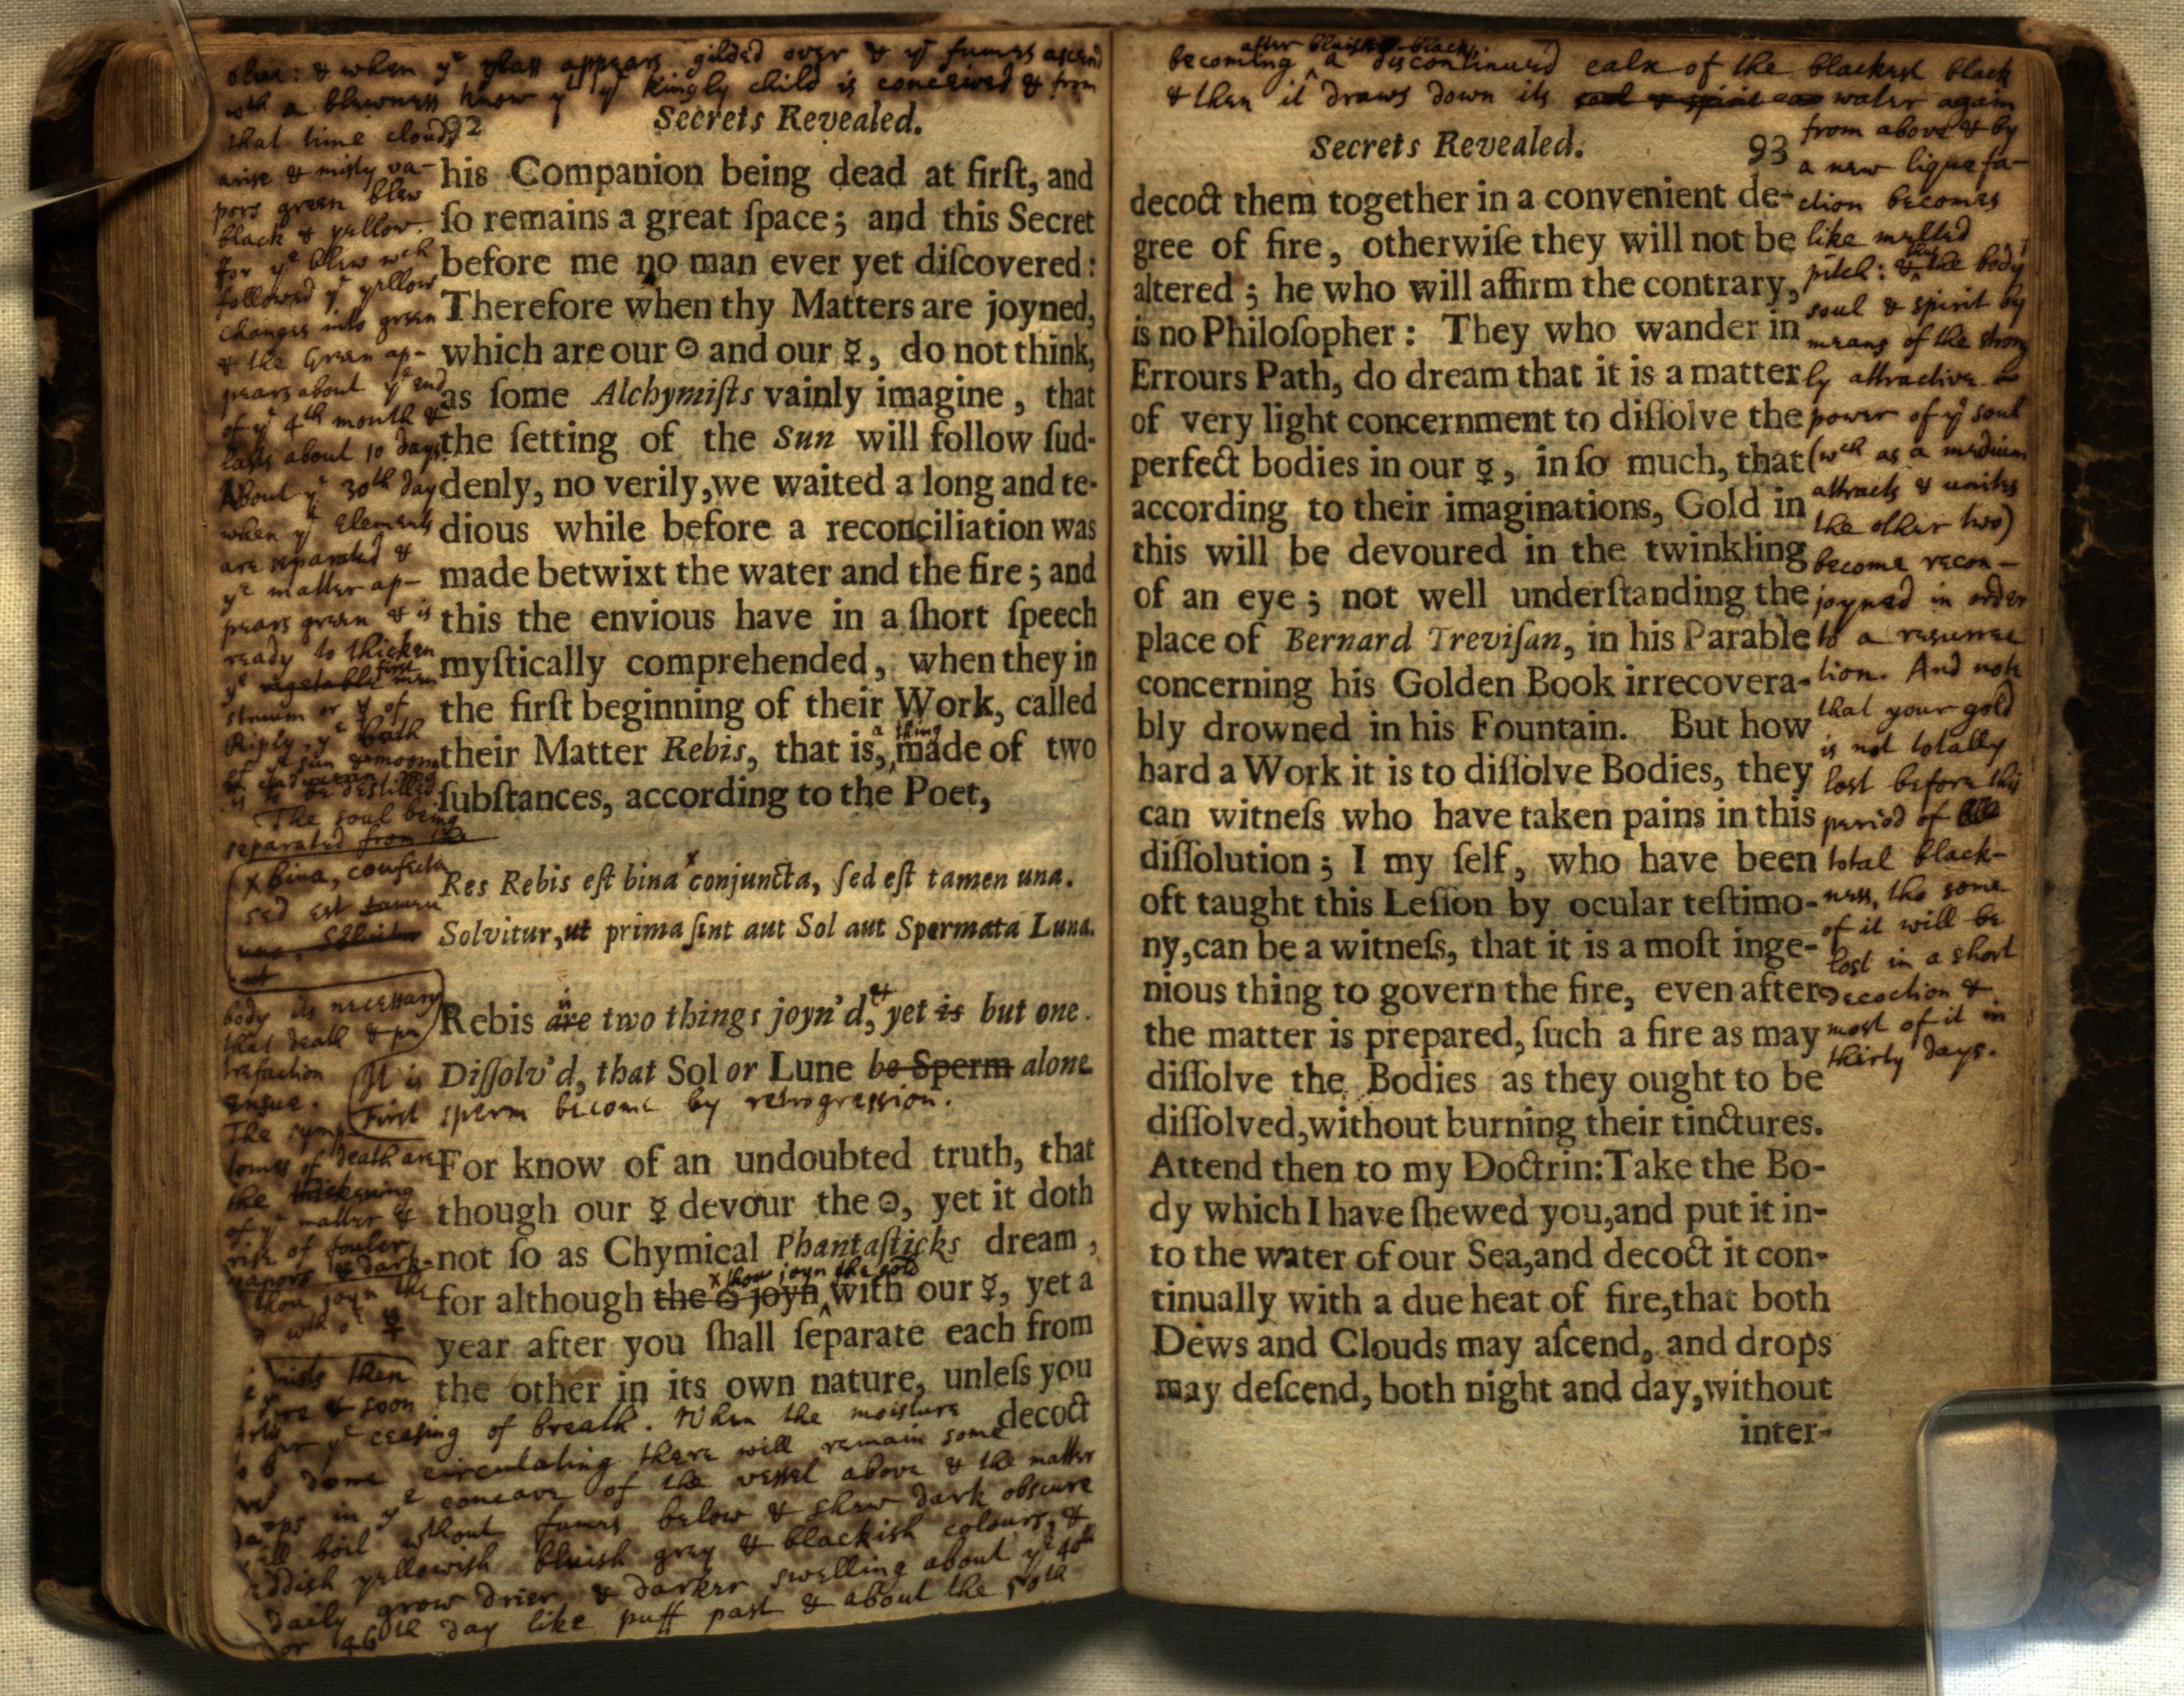 blue: & when yᵉ glass appears gilded over & yᵉ fumes ascend
wᵗʰ a blewness know yᵗ yᵉ Kingly child is conceived & from
that time clouds
arise & misty va-
pors green blew
black & yellow.
for yᵉ blew wᶜʰ
followed yᵉ yellow
changes into green
& the Green ap-
pears about yᵉ end
of yᵉ 4ᵗʰ month &
lasts about 10 days.
About yᵉ 30ᵗʰ day
when yᵉ Elements
are separated &
yᵉ matter ap-
pears green & is
ready to thicken
yᵉ vegetable first men
struum or ☿ of
Riply, yᵉ bath
of yᵉ sun & moon
is to be destilled
The soul being
separated from the
x bina, confecta
sed est tamen
una, Solvitur
ut
body its necessary
that death & pu
trefaction
ensue.
The symp-
tomes of death are
the thickening
of yᵉ matter &
rise of fouler
vapors & dark
thou joyn the
wᵗʰ oʳ ☿
mists then
& soon
92
Secrets Revealed.
his Companion being dead at firſt, and
ſo remains a great ſpace; and this Secret
before me no man ever yet diſcovered:
Therefore when thy Matters are joyned,
which are our ☉ and our ☿, do not think,
as ſome Alchymiſts vainly imagine, that
the ſetting of the Sun will follow ſud-
denly, no verily, we waited a long and te-
dious while before a reconciliation was
made betwixt the water and the fire; and
this the envious have in a ſhort ſpeech
myſtically comprehended, when they in
the firſt beginning of their Work, called
a thing
their Matter Rebis, that is, made of two
ſubſtances, according to the Poet,
Res Rebis eſt bina x conjuncta, ſed eſt tamen una.
Solvitur, ut prima ſint aut Sol aut Spermata Luna.
in &
Rebis are two things joyn'd, yet is but one.
It is Diſſolv'd, that Sol or Lune be Sperm alone.
First sperm become by retrogression.
For know of an undoubted truth, that
though our ☿ devour the ☉, yet it doth
not ſo as Chymical Phantaſticks dream,
x thou joyn the gold
for although the ☉ joyn with our ☿, yet a
year after you ſhall ſeparate each from
the other in its own nature, unleſs you
decoct
yᵉ ceasing of breath. When the moisture
has done circulating there will remain some
drops in yᵉ concave of the vessel above & the matter
will boil wᵗʰout fumes below & shew dark obscure
reddish yellowish bluish grey & blackish colours, &
daily grow drier & darker swelling about yᵉ 40ᵗʰ
or 46ᵗʰ day like puff past & about the 50ᵗʰ
after bluish-black,
becoming a discontinued calx of the blackest black
& then it draws down its soul & spirit water again
from above & by
a new liquefa-
ction becomes
like melted
pitch: & then the body
soul & spirit by
means of the strong
ly attractive
power of yᵉ soul
(wᶜʰ as a medium
attracts & unites
the other two)
become recon-
joyned in order
to a resurrec
tion. And note
that your gold
is not totally
lost before this
period of
total black-
ness, tho some
of it will be
lost in a short
decoction &
most of it in
thirty days.
Secrets Revealed.
93
decoct them together in a convenient de-
gree of fire, otherwiſe they will not be
altered; he who will affirm the contrary,
is no Philoſopher: They who wander in
Errours Path, do dream that it is a matter
of very light concernment to diſſolve the
perfect bodies in our ☿, in ſo much, that
according to their imaginations, Gold in
this will be devoured in the twinkling
of an eye; not well underſtanding the
place of Bernard Treviſan, in his Parable
concerning his Golden Book irrecovera-
bly drowned in his Fountain. But how
hard a Work it is to diſſolve Bodies, they
can witneſs who have taken pains in this
diſſolution; I my ſelf, who have been
oft taught this Leſſion by ocular teſtimo-
ny, can be a witneſs, that it is a moſt inge-
nious thing to govern the fire, even after
the matter is prepared, ſuch a fire as may
diſſolve the Bodies as they ought to be
diſſolved, without burning their tinctures.
Attend then to my Doctrin: Take the Bo-
dy which I have ſhewed you, and put it in-
to the water of our Sea, and decoct it con-
tinually with a due heat of fire, that both
Dews and Clouds may aſcend, and drops
may deſcend, both night and day, without
inter-